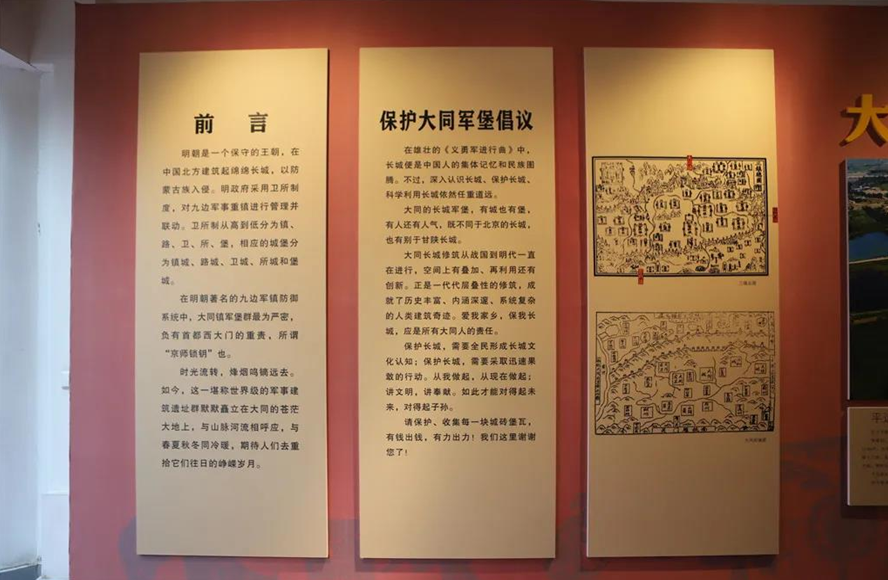 前言
明朝是一个保守的王朝，在
中国北方建筑起绵绵长城，以防
蒙古族入侵。明政府采用卫所制
度，对九边军事重镇进行管理并
联动。卫所制从高到低分为镇、
路、卫、所、堡，相应的城堡分
为镇城、路城、卫城、所城和堡
城。
在明朝著名的九边军镇防御
系统中，大同镇军堡群最为严密，
负有首都西大门的重责，所谓
“京师锁钥”也。
时光流转，烽烟鸣镝远去。
如今，这一堪称世界级的军事建
筑遗址群默默矗立在大同的苍茫
大地上，与山脉河流相呼应，与
春夏秋冬同冷暖，期待人们去重
拾它们往日的峥嵘岁月。
保护大同军堡倡议
在雄壮的《义勇军进行曲》中，
长城便是中国人的集体记忆和民族图
腾。不过，深入认识长城、保护长城、
科学利用长城依然任重道远。
大同的长城军堡，有城也有堡，
有人还有人气，既不同于北京的长城，
也有别于甘陕长城。
大同长城修筑从战国到明代一直
在进行，空间上有叠加、再利用还有
创新。正是一代代层叠性的修筑，成
就了历史丰富、内涵深邃、系统复杂
的人类建筑奇迹。爱我家乡，保我长
城，应是所有大同人的责任。
保护长城，需要全民形成长城文
化认知；保护长城，需要采取迅速果
敢的行动。从我做起，从现在做起；
讲文明，讲奉献。如此才能对得起未
来，对得起子孙。
请保护、收集每一块城砖堡瓦，
有钱出钱，有力出力！我们这里谢谢
您了！
大